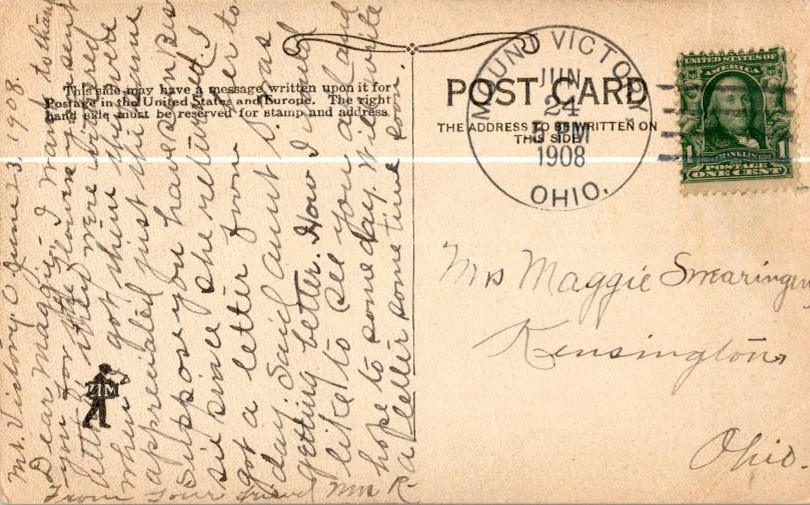 Mt. Victory O June 23. 1908.
Dear Maggie, I want to thank
you for the flowers you sent
they were withered
when I got them they were
appreciated just the same
Suppose you have seen
sis since she returned I
got a letter from her to
day. Said aunt P. was
getting better. How I would
like to see you all and
hope to some day. Will write
a letter some time soon.
From your friend Mrs R-
This side may have a message written upon it for
Postage in the United States and Europe. The right
hand side must be reserved for stamp and address.
POST CARD
THE ADDRESS TO BE WRITTEN ON
THIS SIDE
MOUNT VICTORY
JUN
24
PM
1908
OHIO.
UNITED STATES OF
AMERICA
1 FRANKLIN 1
POSTAGE
ONE CENT
Mrs Maggie Swearingen
Kensington,
Ohio.